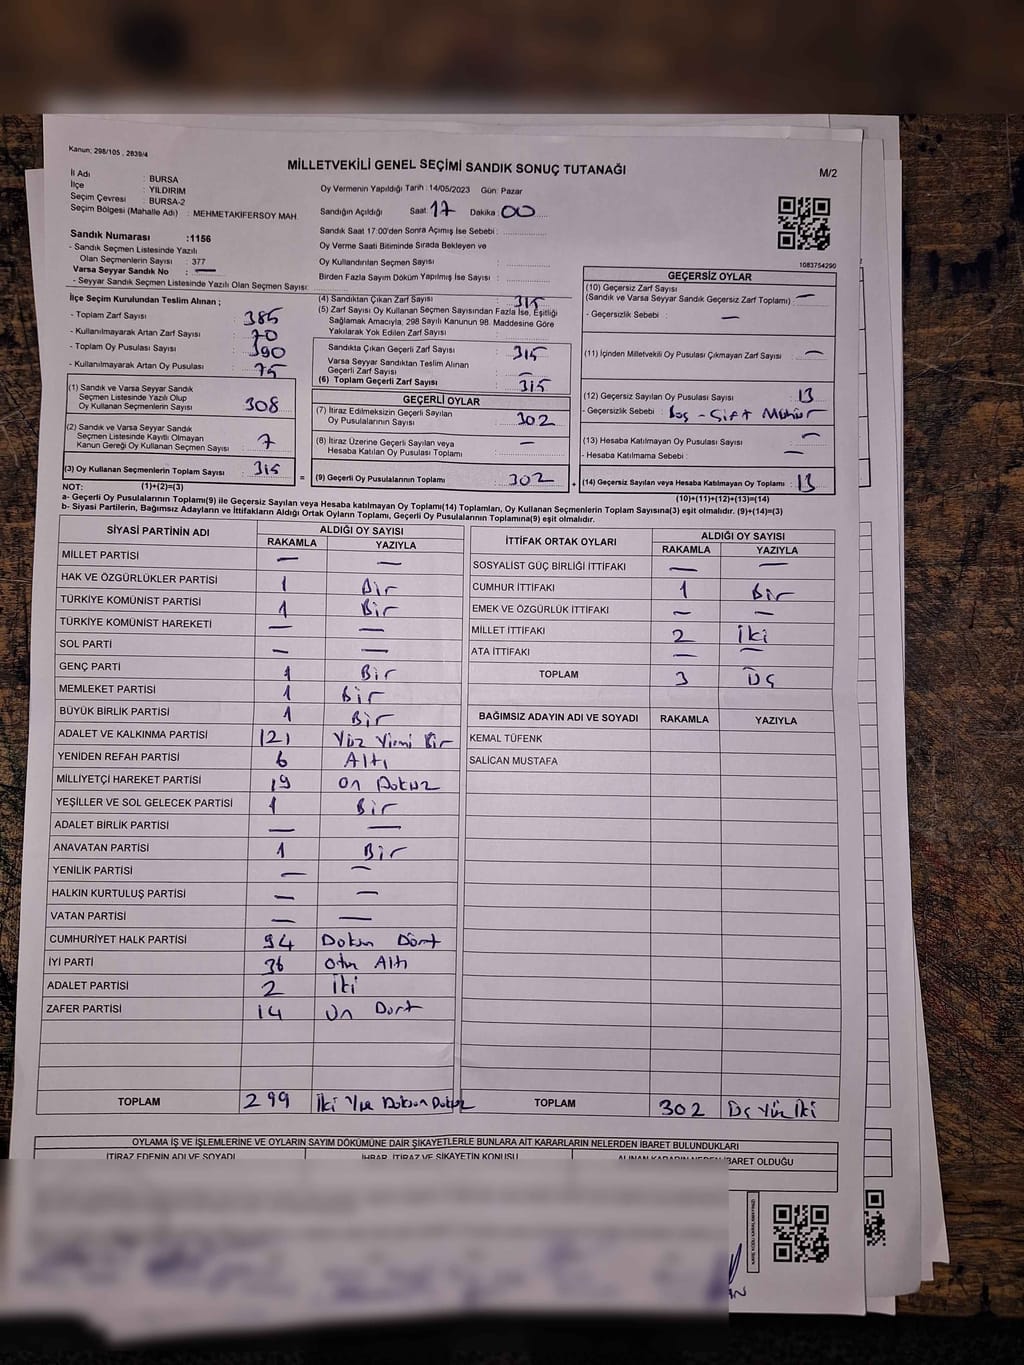 Kanun; 298/105 , 2839/4
MİLLETVEKİLİ GENEL SEÇİMİ SANDIK SONUÇ TUTANAĞI
M/2
İl Adı : BURSA
İlçe : YILDIRIM
Seçim Çevresi : BURSA-2
Seçim Bölgesi (Mahalle Adı) : MEHMETAKİFERSOY MAH.
Oy Vermenin Yapıldığı Tarih : 14/05/2023 Gün: Pazar
Sandığın Açıldığı Saat 17 Dakika 00
Sandık Saat 17:00'den Sonra Açımış İse Sebebi :
Oy Verme Saati Bitiminde Sırada Bekleyen ve
Oy Kullandırılan Seçmen Sayısı :
Birden Fazla Sayım Döküm Yapılmış İse Sayısı :
Sandık Numarası :1156
- Sandık Seçmen Listesinde Yazılı
Olan Seçmenlerin Sayısı : 377
Varsa Seyyar Sandık No : —
- Seyyar Sandık Seçmen Listesinde Yazılı Olan Seçmen Sayısı:
1083754290
İlçe Seçim Kurulundan Teslim Alınan ;
- Toplam Zarf Sayısı 385
- Kullanılmayarak Artan Zarf Sayısı : 70
- Toplam Oy Pusulası Sayısı : 390
- Kullanılmayarak Artan Oy Pusulası : 75
(1) Sandık ve Varsa Seyyar Sandık
Seçmen Listesinde Yazılı Olup
Oy Kullanan Seçmenlerin Sayısı : 308
(2) Sandık ve Varsa Seyyar Sandık
Seçmen Listesinde Kayıtlı Olmayan
Kanun Gereği Oy Kullanan Seçmen Sayısı : 7
(3) Oy Kullanan Seçmenlerin Toplam Sayısı : 315
(4) Sandıktan Çıkan Zarf Sayısı : 315
(5) Zarf Sayısı Oy Kullanan Seçmen Sayısından Fazla İse, Eşitliği
Sağlamak Amacıyla, 298 Sayılı Kanunun 98. Maddesine Göre
Yakılarak Yok Edilen Zarf Sayısı :
Sandıkta Çıkan Geçerli Zarf Sayısı : 315
Varsa Seyyar Sandıktan Teslim Alınan
Geçerli Zarf Sayısı : —
(6) Toplam Geçerli Zarf Sayısı : 315
GEÇERLİ OYLAR
(7) İtiraz Edilmeksizin Geçerli Sayılan
Oy Pusulalarının Sayısı : 302
(8) İtiraz Üzerine Geçerli Sayılan veya
Hesaba Katılan Oy Pusulası Toplamı : —
= (9) Geçerli Oy Pusulalarının Toplamı : 302
GEÇERSİZ OYLAR
(10) Geçersiz Zarf Sayısı
(Sandık ve Varsa Seyyar Sandık Geçersiz Zarf Toplamı) : —
- Geçersizlik Sebebi : —
(11) İçinden Milletvekili Oy Pusulası Çıkmayan Zarf Sayısı : —
(12) Geçersiz Sayılan Oy Pusulası Sayısı : 13
- Geçersizlik Sebebi : Boş - Çift Mühür
(13) Hesaba Katılmayan Oy Pusulası Sayısı : —
- Hesaba Katılmama Sebebi : —
+ (14) Geçersiz Sayılan veya Hesaba Katılmayan Oy Toplamı : 13
NOT: (1)+(2)=(3)
(10)+(11)+(12)+(13)=(14)
a- Geçerli Oy Pusulalarının Toplamı(9) ile Geçersiz Sayılan veya Hesaba katılmayan Oy Toplamı(14) Toplamları, Oy Kullanan Seçmenlerin Toplam Sayısına(3) eşit olmalıdır. (9)+(14)=(3)
b- Siyasi Partilerin, Bağımsız Adayların ve İttifakların Aldığı Ortak Oyların Toplamı, Geçerli Oy Pusulalarının Toplamına(9) eşit olmalıdır.
SİYASİ PARTİNİN ADI ALDIĞI OY SAYISI
RAKAMLA YAZIYLA
MİLLET PARTİSİ — —
HAK VE ÖZGÜRLÜKLER PARTİSİ 1 Bir
TÜRKİYE KOMÜNİST PARTİSİ 1 Bir
TÜRKİYE KOMÜNİST HAREKETİ — —
SOL PARTİ — —
GENÇ PARTİ 1 Bir
MEMLEKET PARTİSİ 1 Bir
BÜYÜK BİRLİK PARTİSİ 1 Bir
ADALET VE KALKINMA PARTİSİ 121 Yüz Yirmi Bir
YENİDEN REFAH PARTİSİ 6 Altı
MİLLİYETÇİ HAREKET PARTİSİ 19 On Dokuz
YEŞİLLER VE SOL GELECEK PARTİSİ 1 Bir
ADALET BİRLİK PARTİSİ — —
ANAVATAN PARTİSİ 1 Bir
YENİLİK PARTİSİ — —
HALKIN KURTULUŞ PARTİSİ — —
VATAN PARTİSİ — —
CUMHURİYET HALK PARTİSİ 94 Doksn Dört
İYİ PARTİ 36 Otuz Altı
ADALET PARTİSİ 2 İki
ZAFER PARTİSİ 14 On Dört
TOPLAM 299 İki Yüz Doksan Dokuz
İTTİFAK ORTAK OYLARI ALDIĞI OY SAYISI
RAKAMLA YAZIYLA
SOSYALİST GÜÇ BİRLİĞİ İTTİFAKI — —
CUMHUR İTTİFAKI 1 Bir
EMEK VE ÖZGÜRLÜK İTTİFAKI — —
MİLLET İTTİFAKI 2 İki
ATA İTTİFAKI — —
TOPLAM 3 Üç
BAĞIMSIZ ADAYIN ADI VE SOYADI RAKAMLA YAZIYLA
KEMAL TÜFENK
SALİCAN MUSTAFA
TOPLAM 302 Üç Yüz İki
OYLAMA İŞ VE İŞLEMLERİNE VE OYLARIN SAYIM DÖKÜMÜNE DAİR ŞİKAYETLERLE BUNLARA AİT KARARLARIN NELERDEN İBARET BULUNDUKLARI
İTİRAZ EDENİN ADI VE SOYADI İHBAR, İTİRAZ VE ŞİKAYETİN KONUSU ALINAN KARARIN NEDEN İBARET OLDUĞU